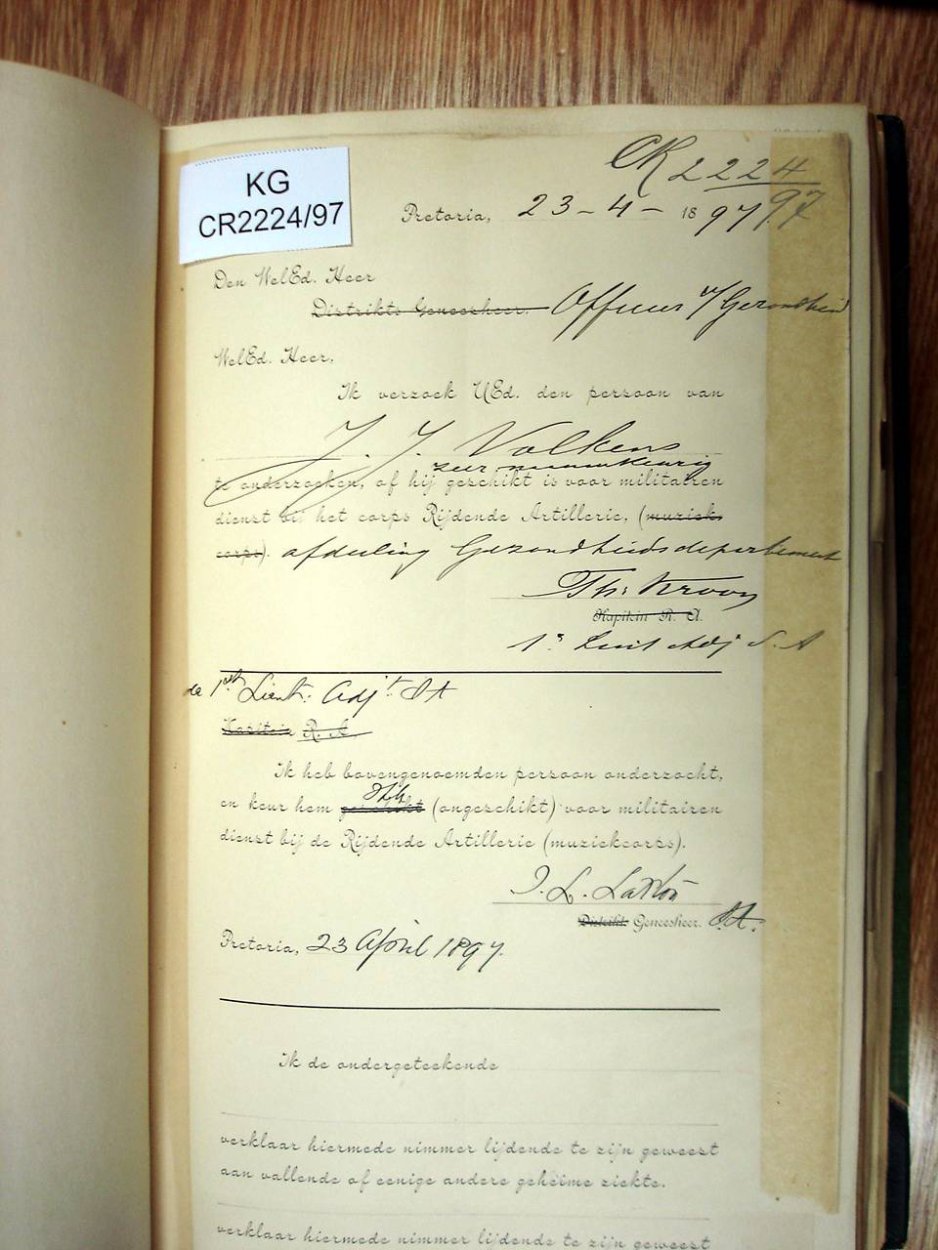 KG
CR2224/97
CR 2224
97
Pretoria, 23-4-1897
Den WelEd. Heer
Distrikts Geneesheer. Officier v/ Gezondheid
WelEd. Heer,
Ik verzoek UEd. den persoon van
J. J. Volkens
zeer nauwkeurig
te onderzoeken, of hij geschikt is voor militairen
dienst bij het corps Rijdende Artillerie, (muziek-
corps). afdeeling Gezondheidsdepartement
Th: Kroon
Kapitein R. A.
1e Luit Adj S. A
de 1ste Lieut: Adjt. S A
Kapitein R. A
Ik heb bovengenoemden persoon onderzocht,
en keur hem geschikt (ongeschikt) voor militairen
dienst bij de Rijdende Artillerie (muziekcorps).
Distrikt Geneesheer. S.A.
Pretoria, 23 April 1897.
Ik de ondergeteekende
verklaar hiermede nimmer lijdende te zijn geweest
aan vallende of eenige andere geheime ziekte.
verklaar hiermede nimmer lijdende te zijn geweest